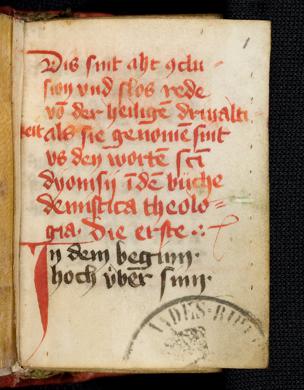 1
Dis sint aht ꝯclu-
sion vnd slos rede
vō der heiligē driualti
keit als sie genomē sint
vs den wortē scī
dyonisij ī dē bůche
de mistica theolo=
gia. Die erste ∴
In dem beginn·
hoch vͤber sinn·